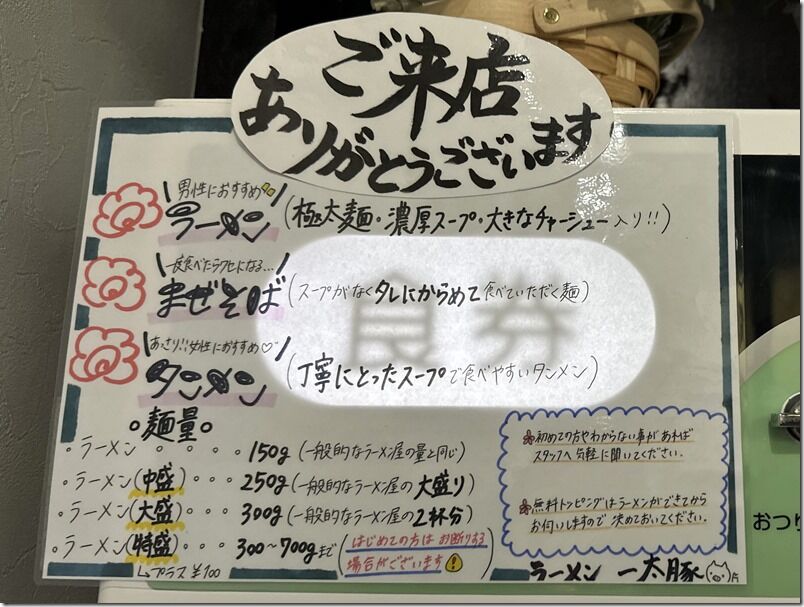 ご来店
ありがとうございます
男性におすすめ
ラーメン (極太麺・濃厚スープ・大きなチャーシュー入り!!)
一度食べたらクセになる…
まぜそば (スープがなくタレにからめて食べていただく麺)
食券
あっさり!!女性におすすめ♡
タンメン (丁寧にとったスープで食べやすいタンメン)
麺量
・ラーメン・・・・150g (一般的なラーメン屋の量と同じ)
・ラーメン(中盛)・・・250g (一般的なラーメン屋の大盛り)
・ラーメン(大盛)・・・300g (一般的なラーメン屋の2杯分)
・ラーメン(特盛)・・・300~700gまで (はじめての方はお断りする場合がございます!)
↳プラス¥100
初めての方やわからない事があれば
スタッフへ気軽に聞いてください。
無料トッピングはラーメンができてから
お伺いしますので決めておいてください。
ラーメン 一太豚
おつり